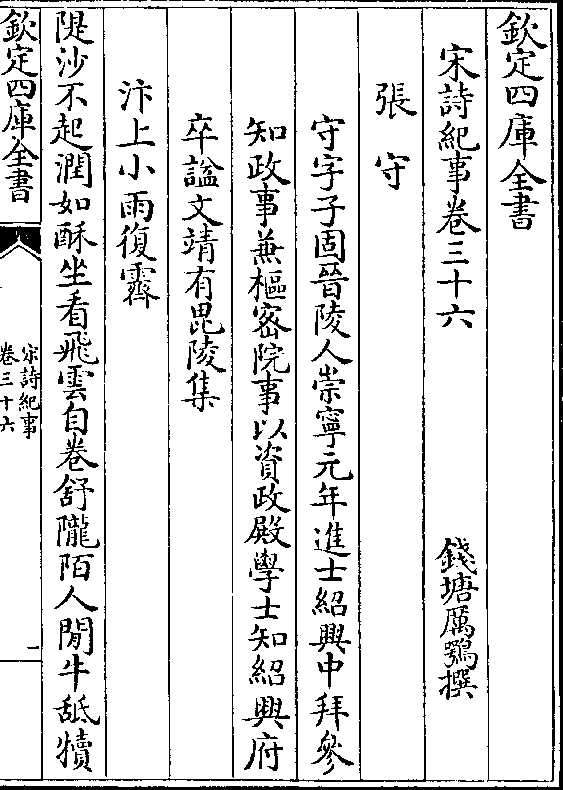 欽定四庫全書
宋詩紀事卷三十六
錢塘厲鶚撰
張守
守字子固晉陵人崇寧元年進士紹興中拜參
知政事兼樞密院事以資政殿學士知紹興府
卒諡文靖有毘陵集
汴上小雨復霽
隄沙不起潤如酥坐看飛雲自卷舒隴陌人閒牛舐犢
欽定四庫全書
宋詩紀事
卷三十六
一